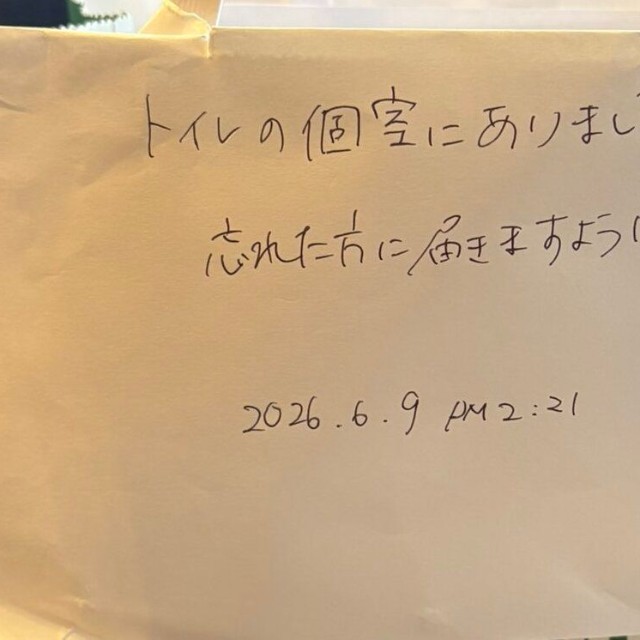 トイレの個室にありまし
忘れた方に届きますように
2026.6.9 PM 2:21